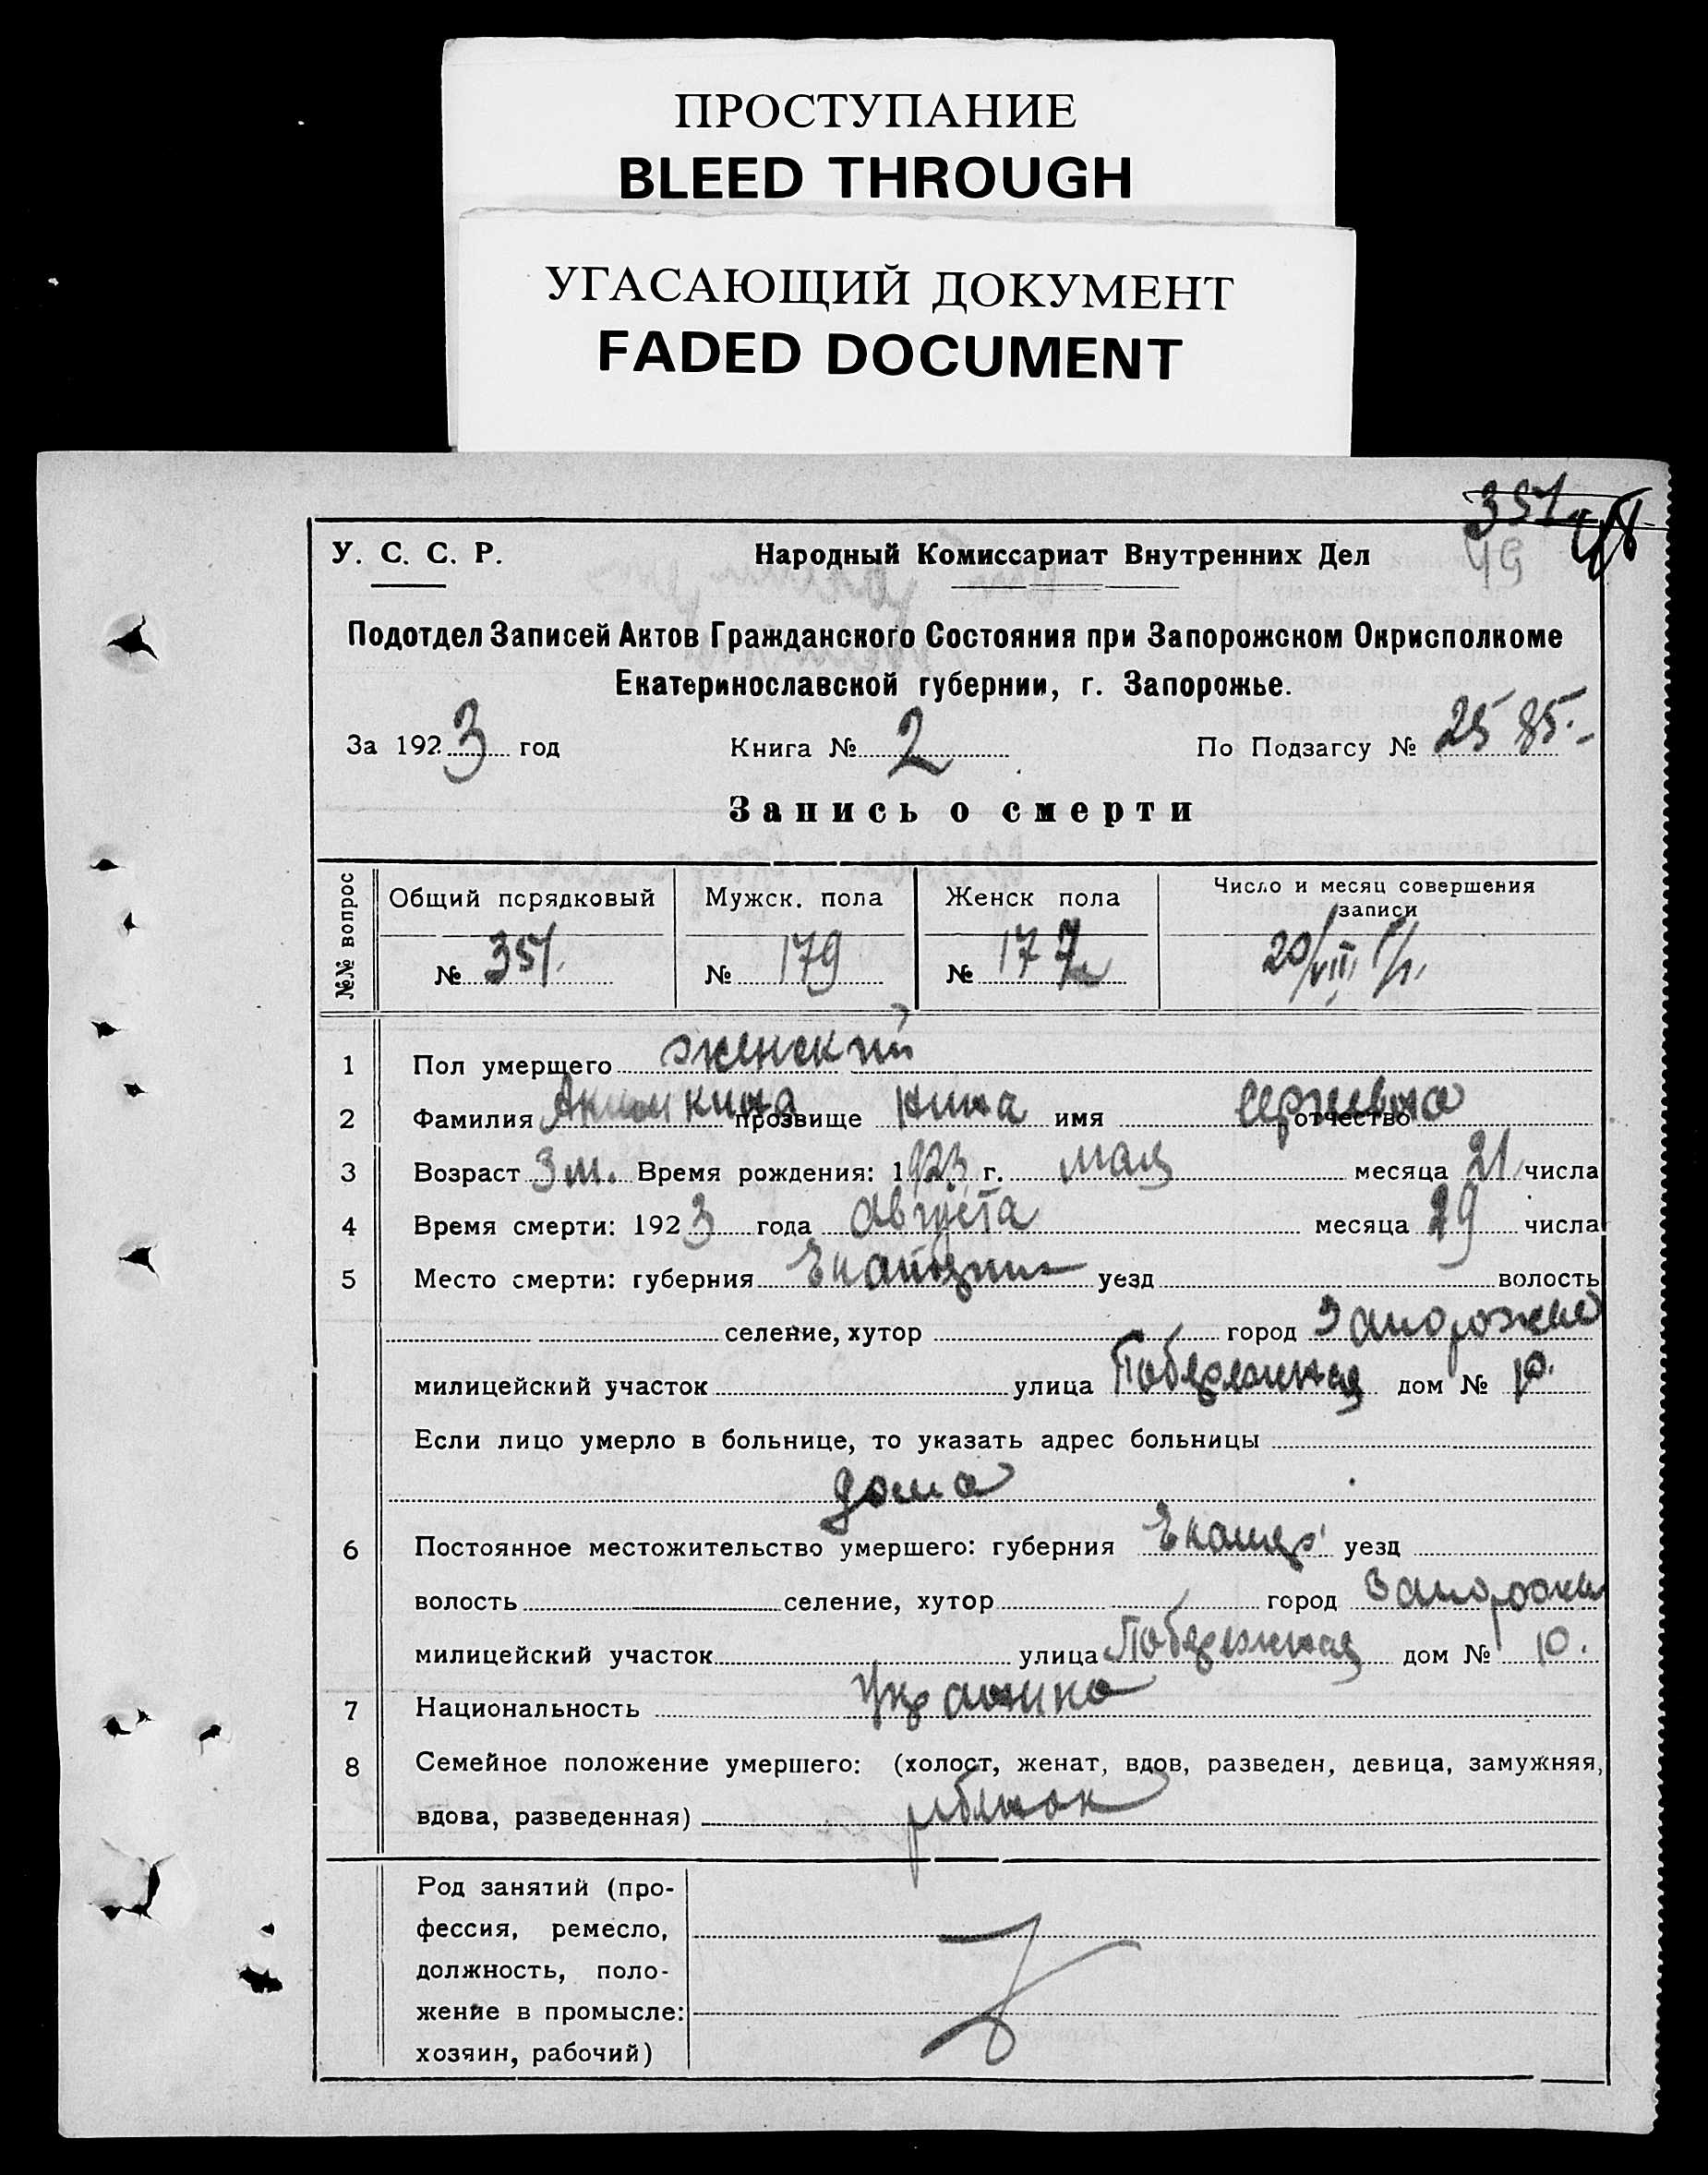 ПРОСТУПАНИЕ
BLEED THROUGH
УГАСАЮЩИЙ ДОКУМЕНТ
FADED DOCUMENT
351
49
У. С. С. Р. Народный Комиссариат Внутренних Дел
Подотдел Записей Актов Гражданского Состояния при Запорожском Окрисполкоме
Екатеринославской губернии, г. Запорожье.
За 1923 год Книга № 2 По Подзагсу № 2585.
Запись о смерти
№№ вопрос Общий порядковый Мужск. пола Женск пола Число и месяц совершения записи
№ 351. № 179 № 177 20/VIII
1 Пол умершего женский
2 Фамилия прозвище Нина имя Сергеевна отчество
3 Возраст 3 м. Время рождения: 1923 г. мая месяца 21 числа
4 Время смерти: 1923 года августа месяца 19 числа
5 Место смерти: губерния Екатерин уезд волость
селение, хутор город Запорожье
милицейский участок улица Побережная дом № 10.
Если лицо умерло в больнице, то указать адрес больницы
дома
6 Постоянное местожительство умершего: губерния Екатер уезд
волость селение, хутор город Запорожье
милицейский участок улица Побережная дом № 10.
7 Национальность Украинка
8 Семейное положение умершего: (холост, женат, вдов, разведен, девица, замужняя,
вдова, разведенная) ребенок
Род занятий (про-
фессия, ремесло,
должность, поло-
жение в промысле:
хозяин, рабочий)